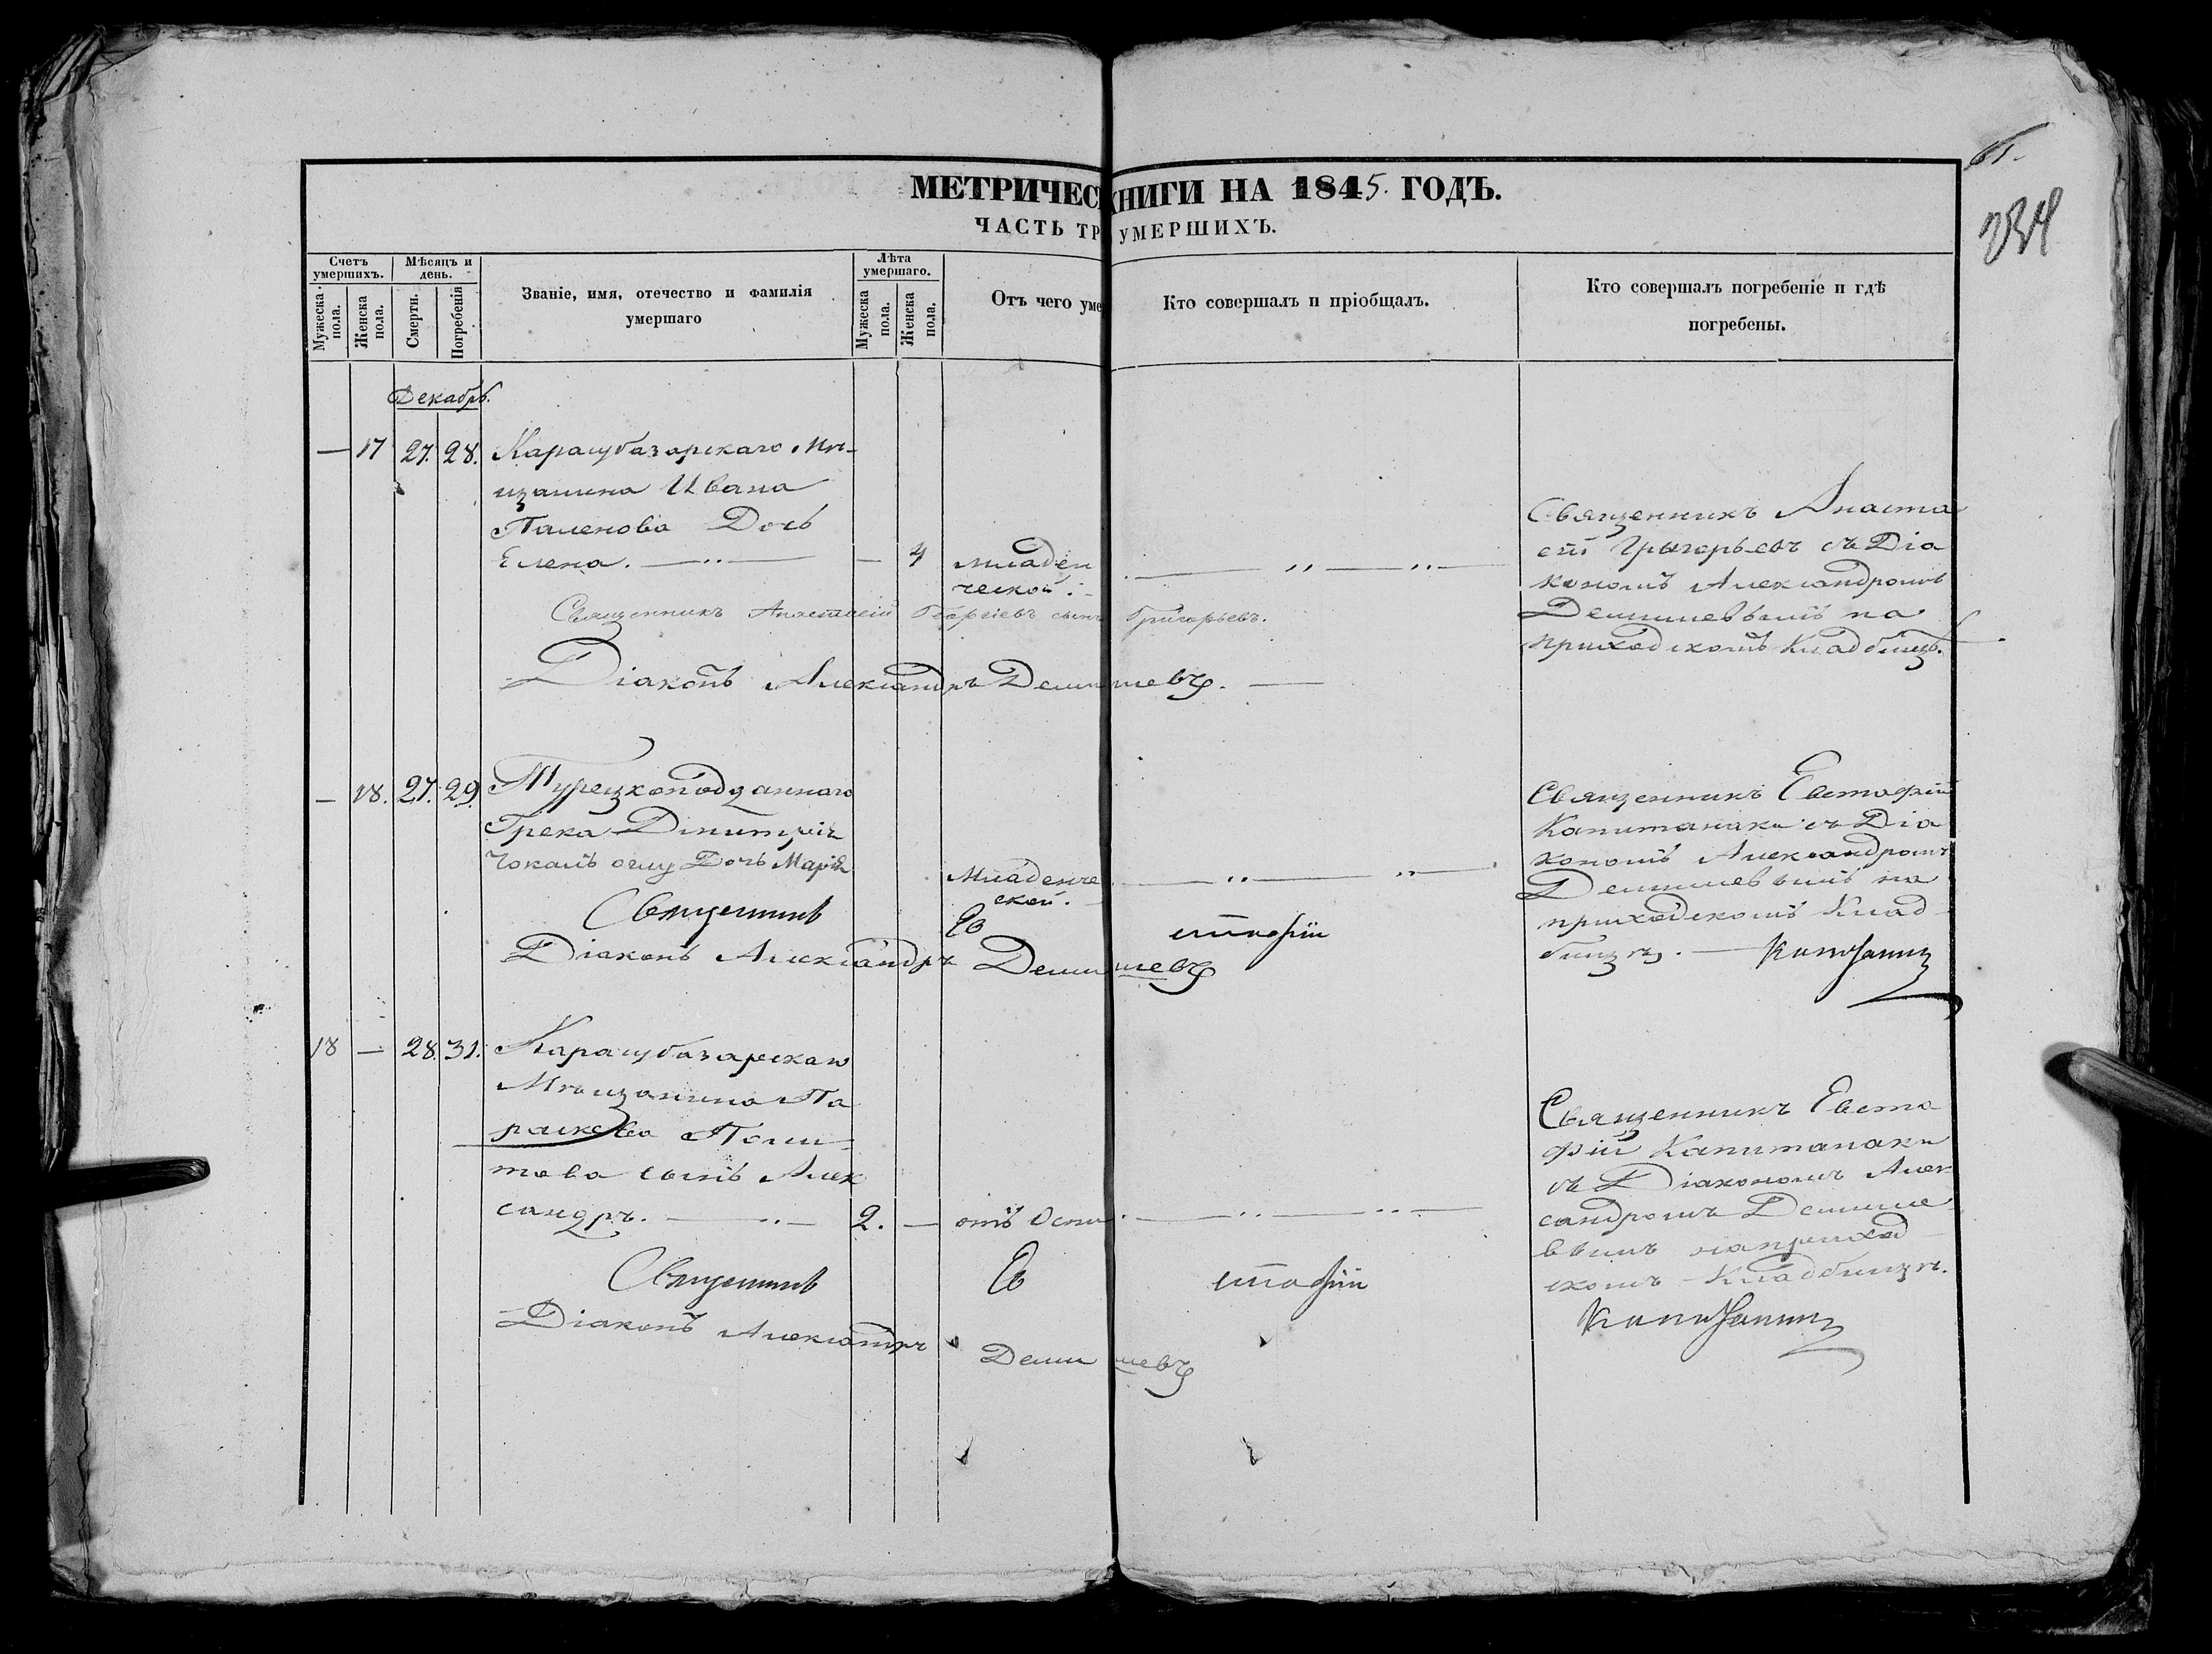 61.
234
МЕТРИЧЕС КНИГИ НА 1845. ГОДЪ.
ЧАСТЬ ТР УМЕРШИХЪ.
Счетъ умершихъ.
Мужеска пола.
Женска пола.
Мѣсяцъ и день.
Смерти.
Погребенія
Званіе, имя, отечество и фамилія
умершаго
Лѣта умершаго.
Мужеска пола.
Женска пола.
Отъ чего уме
Кто совершалъ и пріобщалъ.
Кто совершалъ погребеніе и гдѣ
погребены.
Декабрь.
— 17 27. 28. Карасубазарскаго Мѣ-
щанина Ивана
Паленова Дочь
Елена. — „ — — 4 младен
ческой.
Священникъ Анаста
сій Григорьевъ съ Діа
кономъ Александромъ
Демишевымъ на
приходскомъ Кладбищѣ.
Священникъ Анастасій Георгіевъ сынъ Григорьевъ.
Діаконъ Александръ Демишевъ. —
— 18. 27. 29. Турецкоподданнаго
Грека Дмитрія
Чокалъ оглу Дочь Марія
Младенче
ской.
Священникъ Евстафій
Капитанаки съ Діа
кономъ Александромъ
Демишевымъ на
приходскомъ Клад
бищѣ. —
Священникъ Евстафій Капитанаки
Діаконъ Александръ Демишевъ
18 — 28. 31. Карасубазарскаго
Мѣщанина Па
раскева Поли-
това сынъ Алек
сандръ. — „ — 2. — отъ Оспы
Священникъ Евста
фій Капитанаки
съ Діакономъ Алек
сандромъ Демише
вымъ на приход
скомъ Кладбищѣ.
Священникъ Евстафій Капитанаки
Діаконъ Александръ Демишевъ